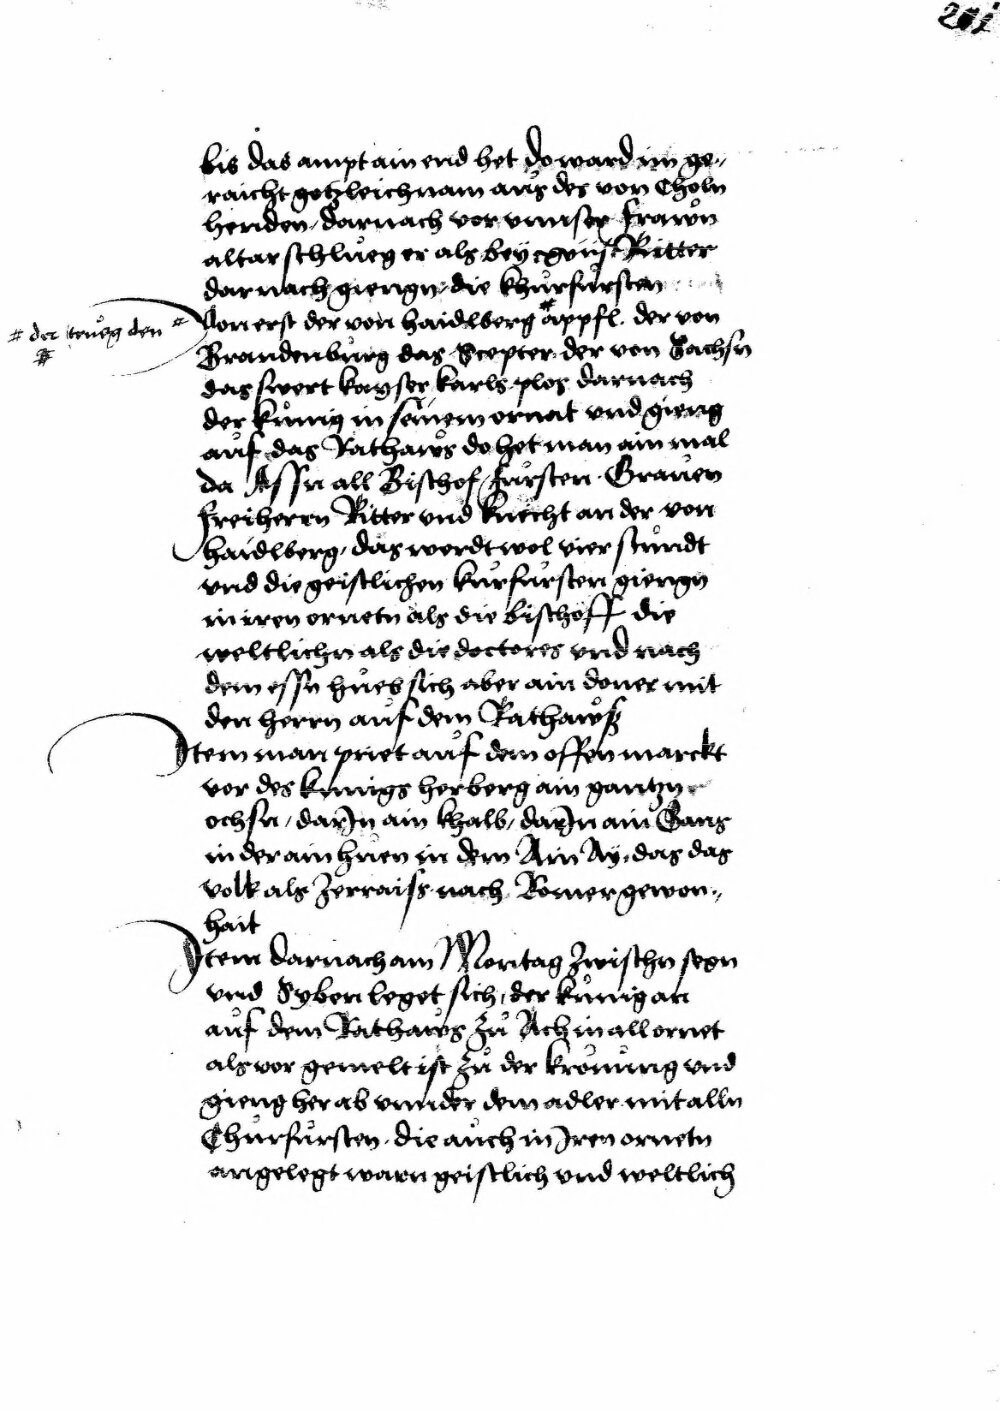 201
bis das ampt ain end het do ward im ge„
raicht gotzleichnam aus des von Choln
henden, darnach vor vnnser frawn
altar schlueg er als bey Ritter
darnach giengn die khůrfůrsten
von erst der von haidlberg # appfl. der von
# der trueg den #
Brandenbůrg das Scepter der von Sachsn
das swert kayser karls plos darnach
der kůnig in seinem ornat vnd gieng
aůf das Rathaws do het man ain mal
da Assn all Bischof fůrsten Graůen
freiherrn Ritter vnd knecht an der von
haidlberg, das werdt wol vier stůndt
vnd die geistlichen kůrfůrsten giengn
in iren ornetn als die bischoff die
weltlichn als die doctores vnd nach
dem essn hůeb sich aber ain doner mit
den herrn aůf dem Rathawß
Item man priet aůf dem offen marckt
vor des kunigs herberg ain gantzn
ochsn, darIn ain khalb, darIn ain Gans
in der ain hůen in dem Ain Ay, das das
volk als Zerraiss nach Romer gewon„
hait
Item darnach am Montag Zwischn sexn
vnd Syben leget sich der kůnig an
aůf dem Rathaws Zů Ach in all ornet
als vor gemelt ist Zů der krönůng vnd
gieng herab vnnder dem adler mit alln
Chůrfůrsten die aůch in Iren ornetn
angelegt warn geistlich vnd weltlich